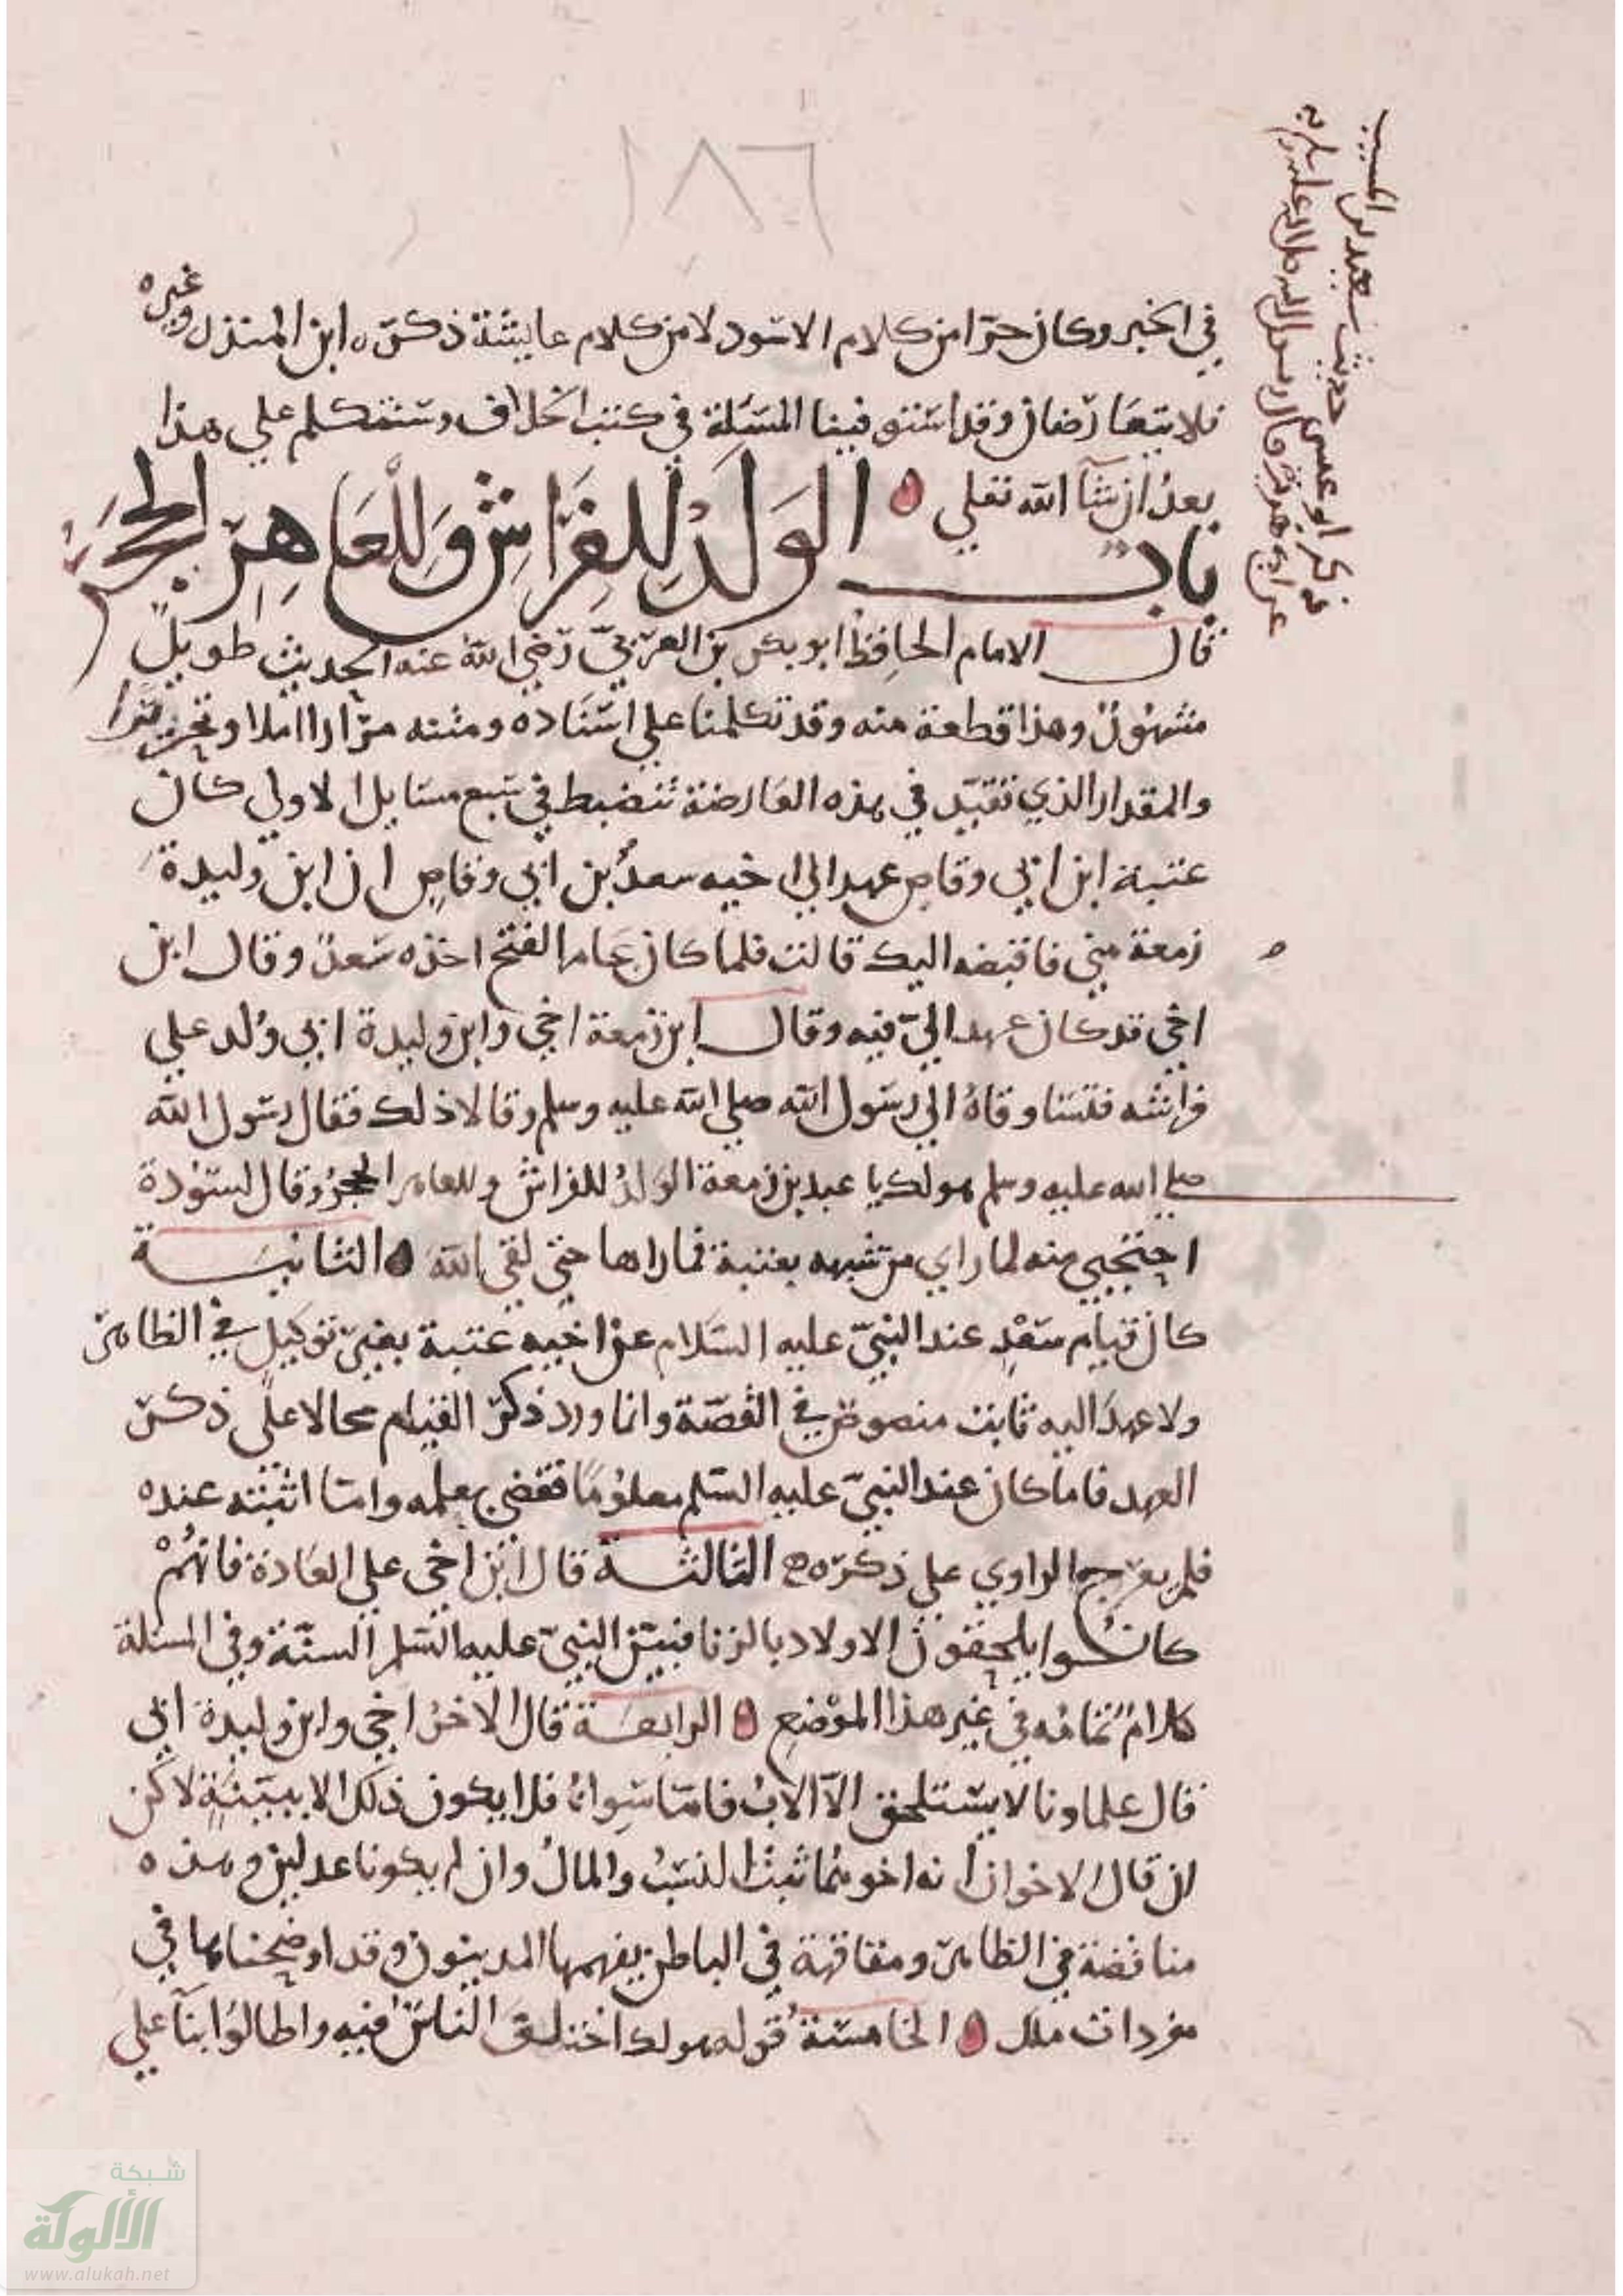 ١٨٦
في الخبر وكان حرا من كلام الاسود لا من كلام عايشة ذكره ابن المنذر وغيره
فلا يتعارضان وقد استوفينا المسئلة في كتب الخلاف وسنتكلم علي هذا
بعدُ ان شآ الله تعلي
باب الوَلَدُ لِلفِرَاشِ وَلِلعَاهِرِ الحَجَرُ
قال الامام الحافظ ابو بكر بن العربيّ رضي الله عنه الحديث طويلٌ
مشهورٌ وهذا قطعة منه وقد تكلمنا علي اسناده ومتنه مرارا املا وتحريرا
والمقدار الذي تقيّد في هذه العارضة تنضبط في سبع مسايل الاولي كان
عتبة ابن ابي وقاص عهد الي اخيه سعدُ بن ابي وقاصٍ ان ابن وليدة
زمعة مني فاقبضه اليك قالت فلما كان عام الفتح اخذه سَعدٌ وقال ابن
اخي قد كان عهد اليّ فيه وقال ابن زمعة اخي وابن وليدة ابي وُلد علي
فراشه فتساوقاهُ الي رسول الله صلي الله عليه وسلم وقالا ذلك فقال رسول الله
صلي الله عليه وسلم هو لك يا عبد بن زمعة الوَلدُ للفراش وللعاهر الحجرُ وقال لسَوْدة
احتجبي منه لما راي من شبهه بعتبة فما راها حتي لقي الله الثانيــة
كان قيام سَعْدٍ عند النبيّ عليه السّلام عن اخيه عتبة بغير توكيلٍ في الظاهر
ولا عهدَ اليه ثابت منصوص في القصّة وانما ورد ذكر القيام محالا علي ذكر
العهد فاما كان عند النبيّ عليه السّلم معلومًا فقضي بعلمه واما اثبته عنده
فلم يعرّج الراوي علي ذكره الثالثــة قال ابن اخي علي العادة فانهُمْ
كانُــوا يلحقونَ الاولاد بالزنا فبيّن النبيّ عليه السّلم السنّة وفي المسئلة
كلامٌ تمامُه في غير هذا الموْضع الرابعــة قال الاخرُ اخي وابن وليدة ابي
قال علماونا لا يسْتلحق الاّ الابُ فامّا سِواهُ فلا يكون ذلك الا ببيّنةٍ لاكن
ان قالَ الاخوان انه اخوهُما ثبتُ النسَبُ والمالُ وان لم يكونا عدلين وهذه
مناقضة في الظاهر ومفاقهة في الباطن يفهمها المدينون وقد اوضحناها في
مفردات ملك الخامسَةُ قوله هو لك اختلفَ الناسُ فيه واطالوُا بنآ علي
ذكر ابو عيسي حديث سعيد بن المسيب
عن ابي هريرة قال رسول الله صلي الله عليه وسلم
شبكة
الألوكة
www.alukah.net